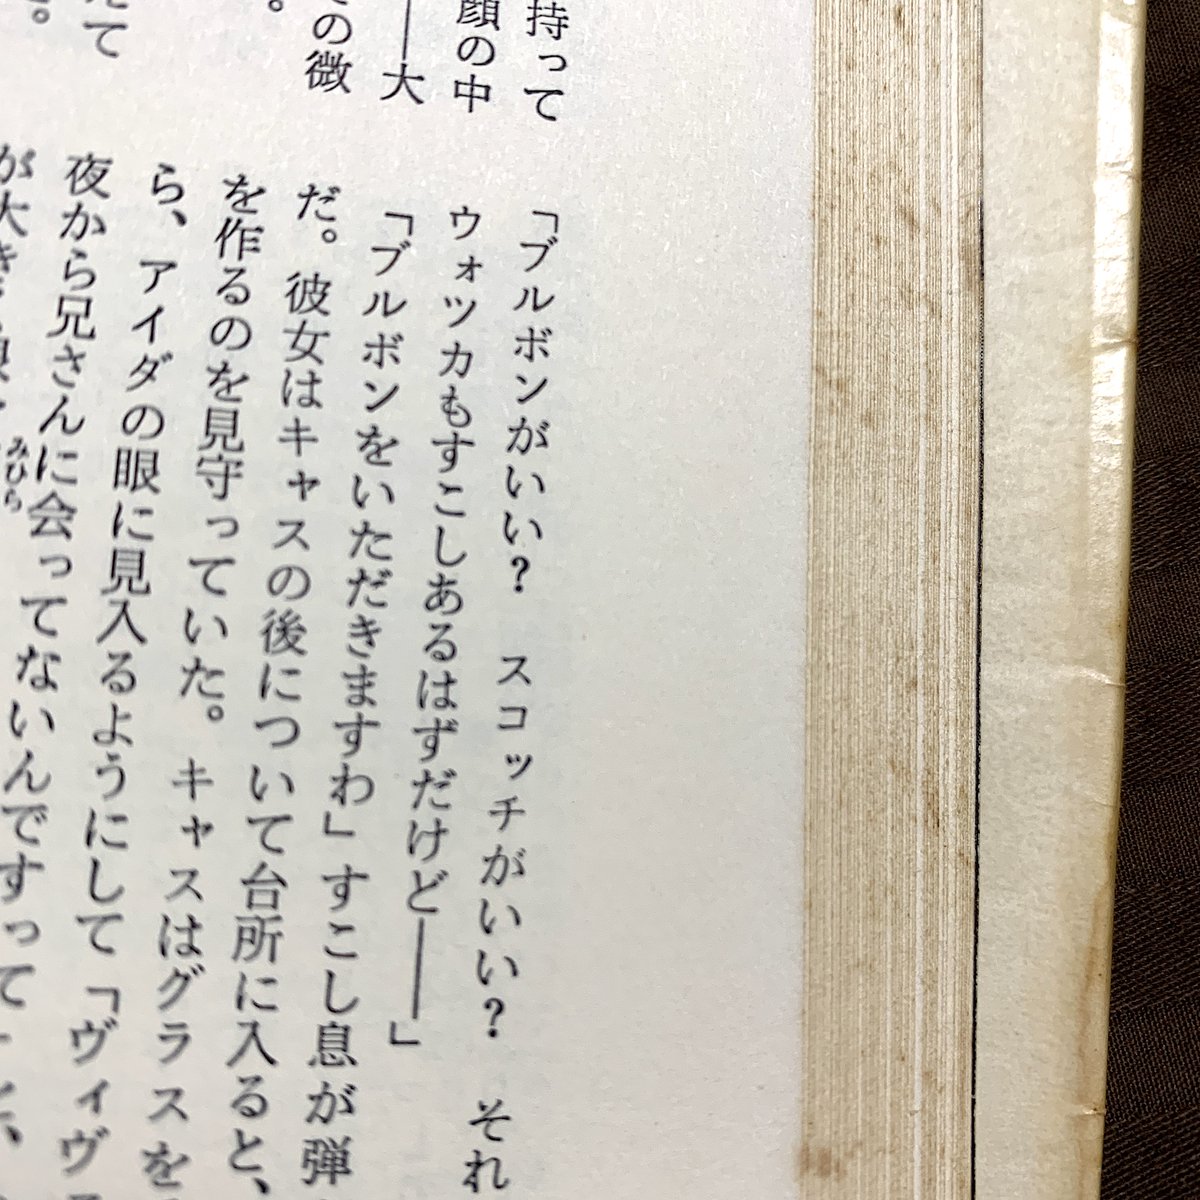 持って
顔の中
――大
の微
。
たて
。
「ブルボンがいい？　スコッチがいい？　それ
ウォツカもすこしあるはずだけど――」
「ブルボンをいただきますわ」すこし息が弾
だ。彼女はキャスの後について台所に入ると、
を作るのを見守っていた。キャスはグラスを
ら、アイダの眼に見入るようにして「ヴィヴ
夜から兄さんに会ってないんですって
が大き
みひら